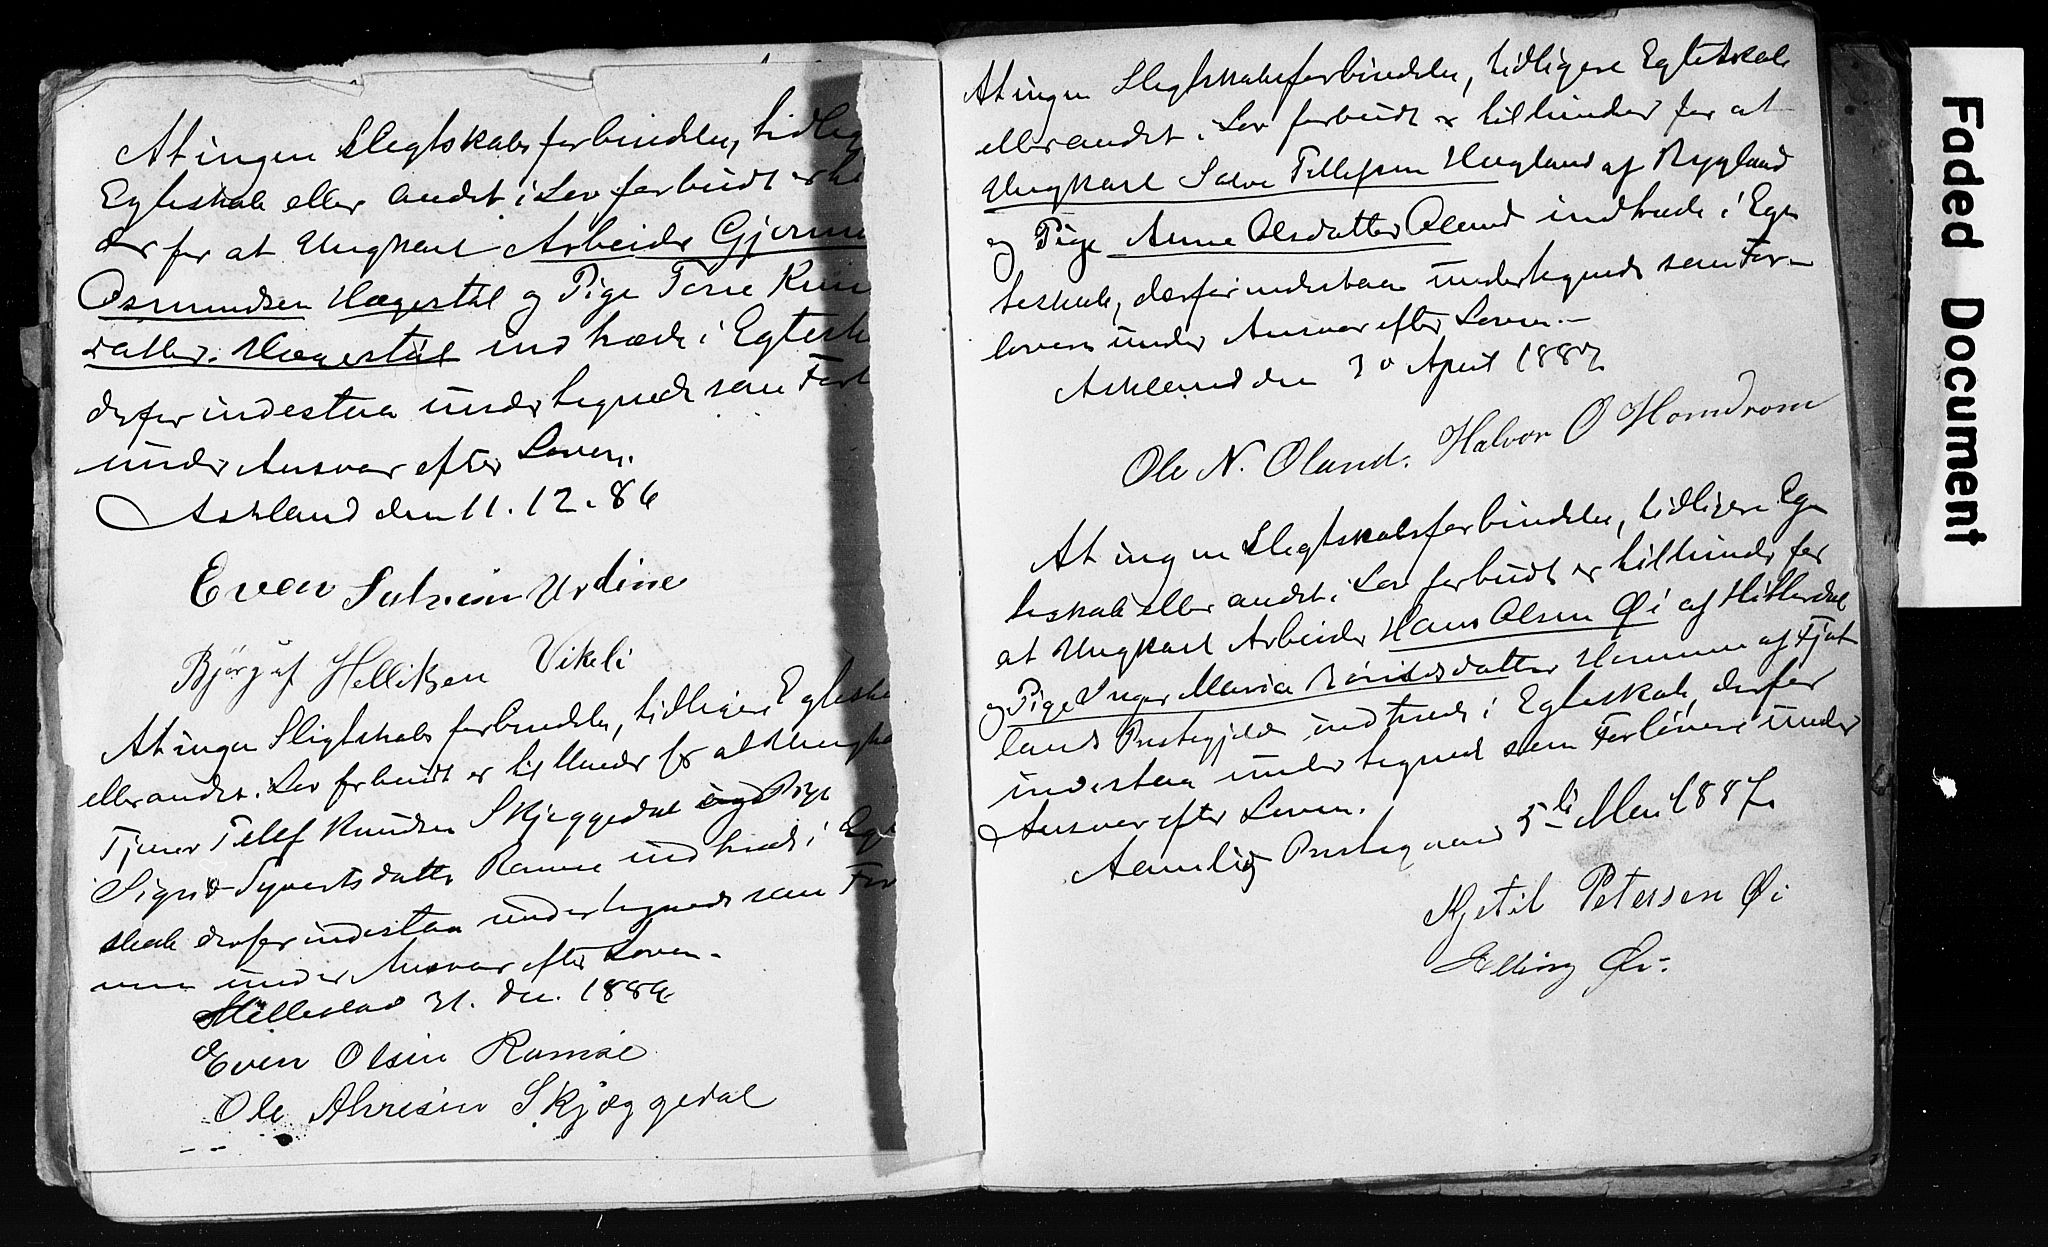 At ingen Slegtskabsforbindelse, tidlig
Egteskab eller andet i Lov forbudt er hi
der for at Ungkarl Arbeider Gjermu
Osmundsen Hægestøl og Pige Tone Knu
datter Hægestøl indtræde i Egtesk
derfor indestaa undertegnede som Forl
under Ansvar efter Loven.
Askland den 11.12.86
Even Urdine
Bjørguf Helliksen Vikeli
At ingen Slegtskabsforbindelse, tidligere Egteska
eller andet i Lov forbudt er til Hinder for at Ungka
Tjener Tellef Knudsen Skjeggedal og Pige
Sigrid Syvertsdatter Ramse indtræde i Egt
skab derfor indestaa undertegnede som For
under Ansvar efter Loven.
31. Dec. 1886
Even Olsen Ramse
Ole Skjæggedal
At ingen Slegtskabsforbindelse, tidligere Egteskab
eller andet i Lov forbudt er til hinder for at
Ungkarl Salve Tellefsen Hugland af Bygland
og Pige Anne Olsdatter Oland indtræde i Eg
teskab, derfor indestaa undertegnede som For-
lovere under Ansvar efter Loven.-
Askland den 30 April 1887
Ole N. Oland. Halvor O Homdrom
At ingen Slegtskabsforbindelse, tidligere Eg
teskab eller andet i Lov forbudt er til hinder for
at Ungkarl Arbeider Hans Olsen Øi af Hitterdal
og Pige Inger Maria Homme af Fjot
land Præstegjeld indtræde i Egteskab, derfor
indestaa undertegnede som Forlovere under
Ansvar efter Loven.
Aamlid Præstegaard 5te Mai 1887.
Kjetil Petersen Øi
Elling Øi.
Faded Document